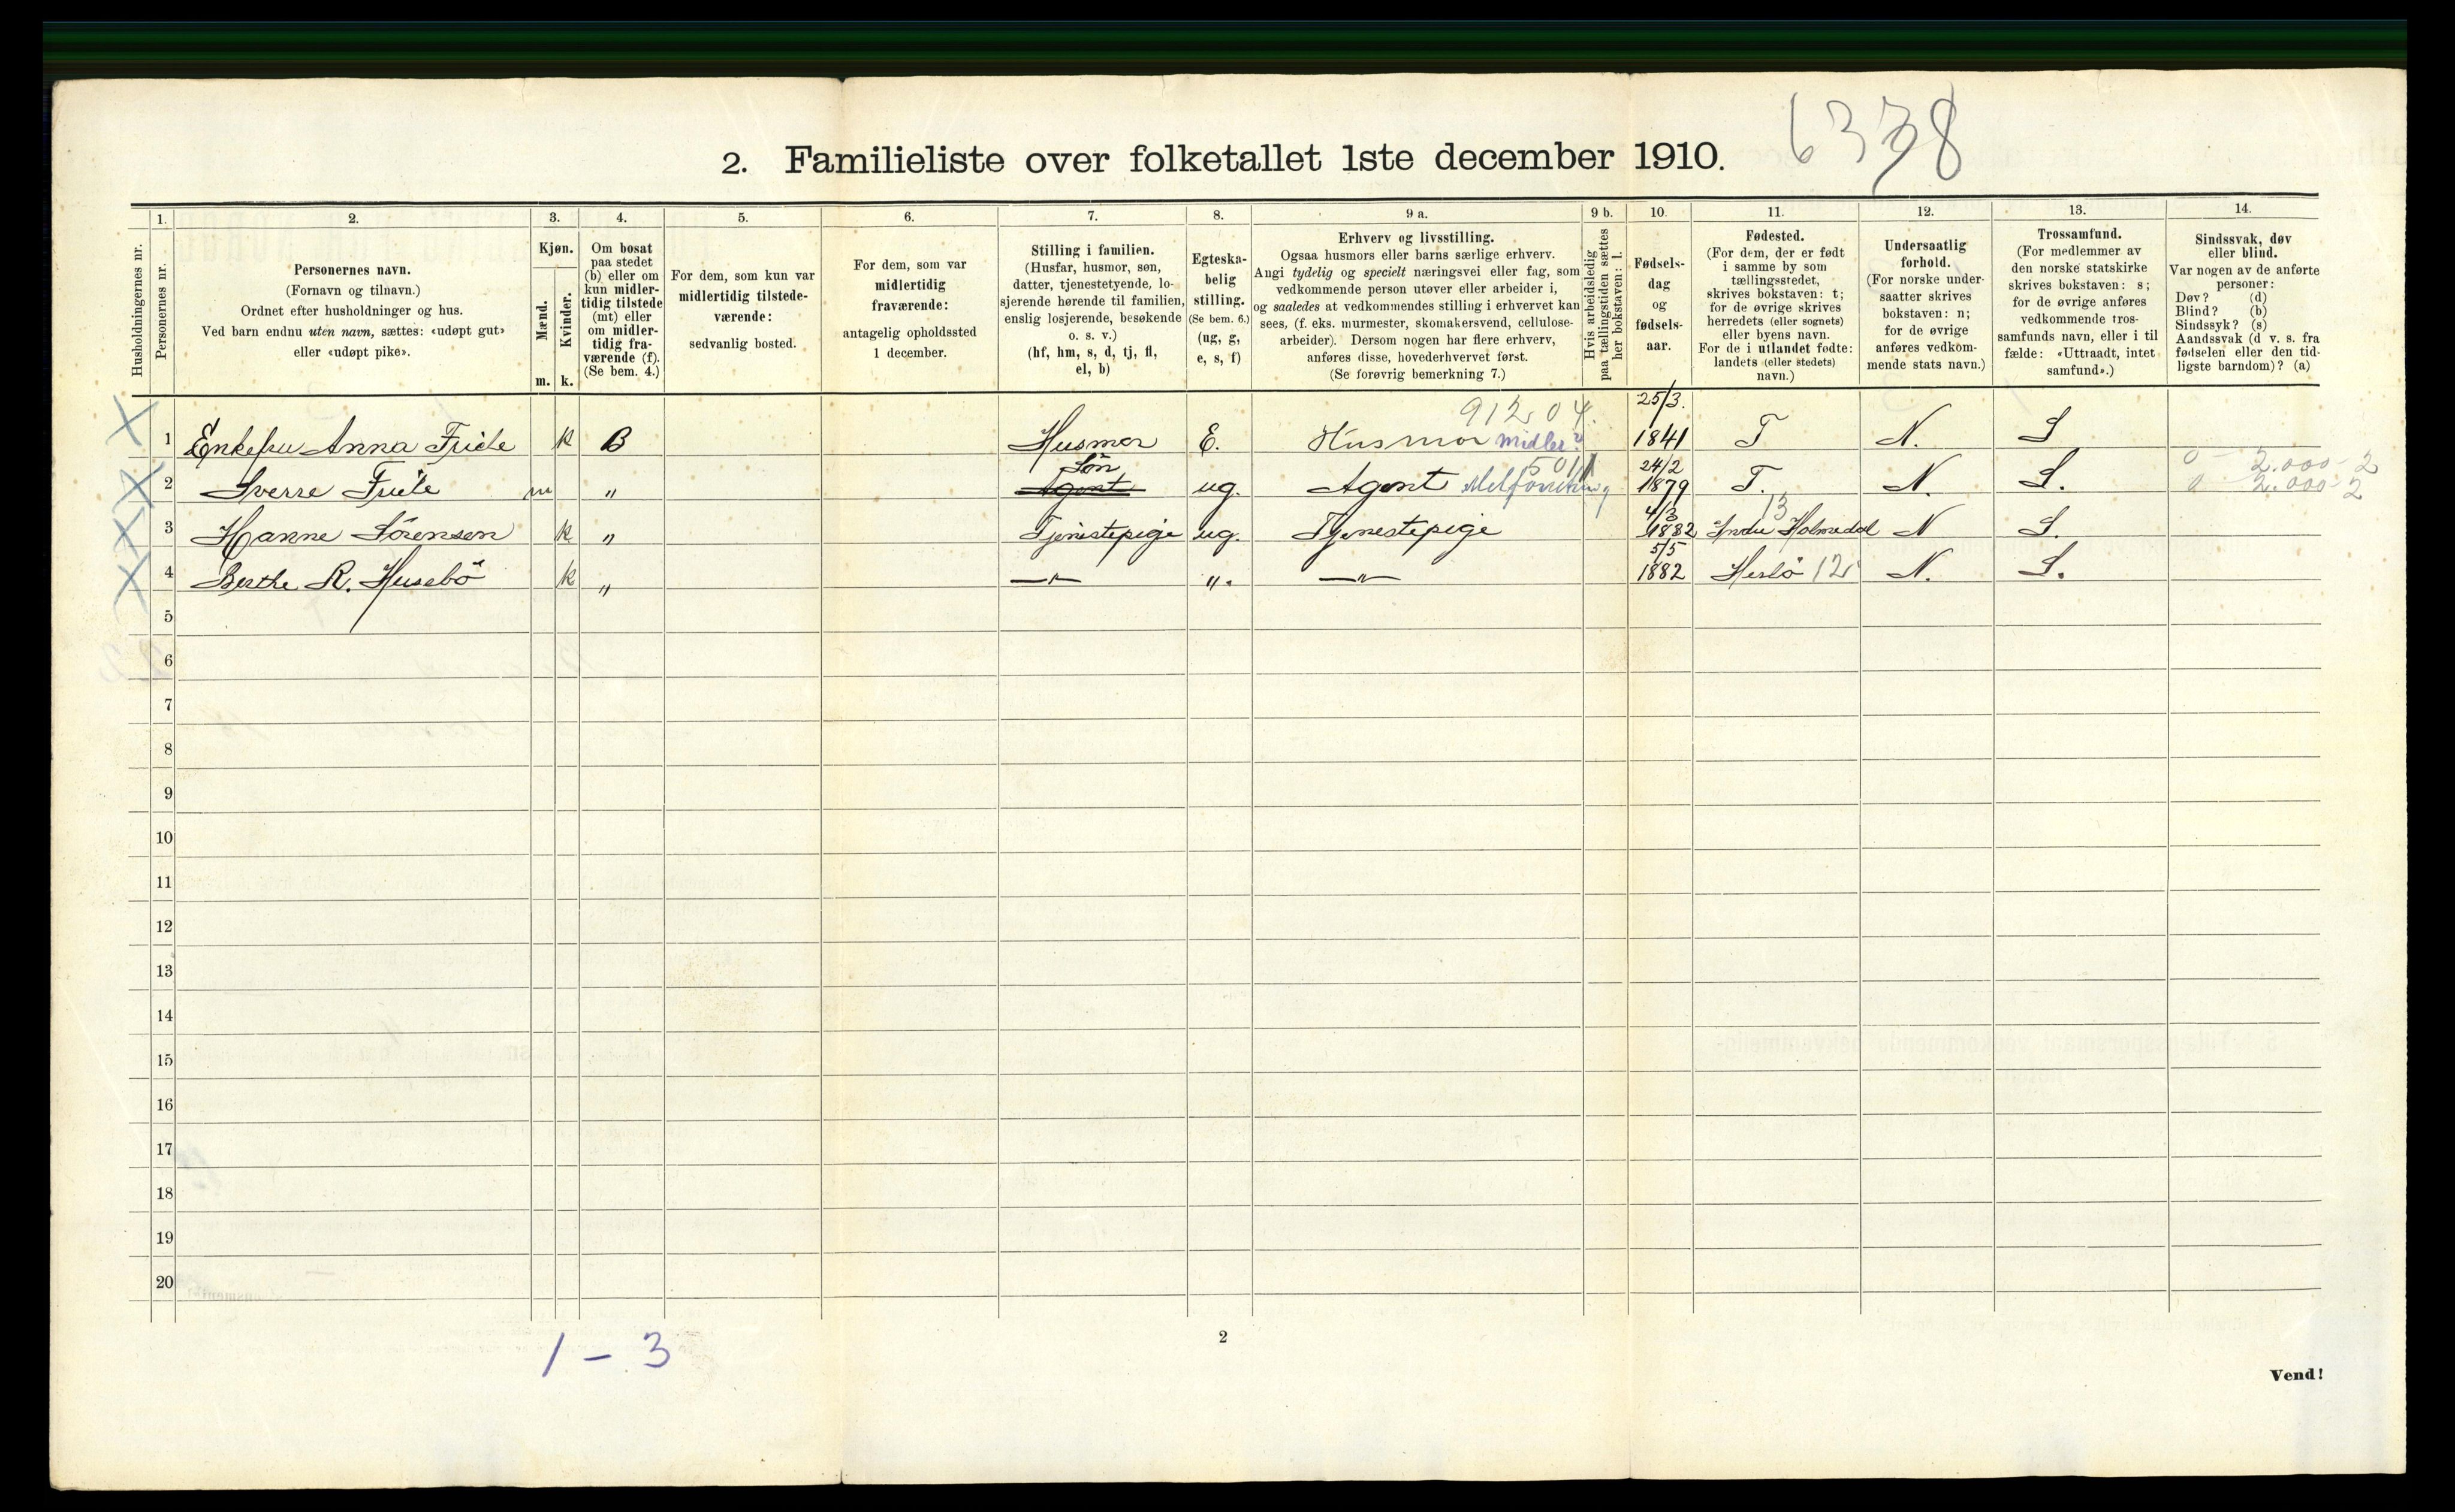 6338
2. Familieliste over folketallet 1ste december 1910.
Husholdningernes nr.
1.
Personernes nr.
2.
Personernes navn.
(Fornavn og tilnavn.)
Ordnet efter husholdninger og hus.
Ved barn endnu uten navn, sættes: «udøpt gut»
eller «udøpt pike».
3.
Kjøn.
Mænd.
Kvinder.
m. k.
4.
Om bosat
paa stedet
(b) eller om
kun midler-
tidig tilstede
(mt) eller
om midler-
tidig fra-
værende (f).
(Se bem. 4.)
5.
For dem, som kun var
midlertidig tilstede-
værende:
sedvanlig bosted.
6.
For dem, som var
midlertidig
fraværende:
antagelig opholdssted
1 december.
7.
Stilling i familien.
(Husfar, husmor, søn,
datter, tjenestetyende, lo-
sjerende hørende til familien,
enslig losjerende, besøkende
o. s. v.)
(hf, hm, s, d, tj, fl,
el, b)
8.
Egteska-
belig
stilling.
(Se bem. 6.)
(ug, g,
e, s, f)
9 a.
Erhverv og livsstilling.
Ogsaa husmors eller barns særlige erhverv.
Angi tydelig og specielt næringsvei eller fag, som
vedkommende person utøver eller arbeider i,
og saaledes at vedkommendes stilling i erhvervet kan
sees, (f. eks. murmester, skomakersvend, cellulose-
arbeider). Dersom nogen har flere erhverv,
anføres disse, hovederhvervet først.
(Se forøvrig bemerkning 7.)
9 b.
Hvis arbeidsledig
paa tællingstiden sættes
her bokstaven: l.
10.
Fødsels-
dag
og
fødsels-
aar.
11.
Fødested.
(For dem, der er født
i samme by som
tællingsstedet,
skrives bokstaven: t;
for de øvrige skrives
herredets (eller sognets)
eller byens navn.
For de i utlandet fødte:
landets (eller stedets)
navn.)
12.
Undersaatlig
forhold.
(For norske under-
saatter skrives
bokstaven: n;
for de øvrige
anføres vedkom-
mende stats navn.)
13.
Trossamfund.
(For medlemmer av
den norske statskirke
skrives bokstaven: s;
for de øvrige anføres
vedkommende tros-
samfunds navn, eller i til
fælde: «Uttraadt, intet
samfund».)
14.
Sindssvak, døv
eller blind.
Var nogen av de anførte
personer:
Døv? (d)
Blind? (b)
Sindssyk? (s)
Aandssvak (d v. s. fra
fødselen eller den tid-
ligste barndom)? (a)
912 04. 25/3.
1 Enkefru Anna Friele k B Husmor E. Husmor Midler? 1841 T N. S
Søn 5011 24/2 0 2.000-2
2 Sverre Friele m " Agent ug. Agent 1879 T. N. S. 0 2.000-2
4/3 13
3 Hanne Sörensen k " Tjenestepige ug. Tjenestepige 1882 Indre Holmedal N S.
5/5
4 Berthe R. Husebö k " —"— ". —"— 1882 Herlö 12 N. S.
5
6
7
8
9
10
11
12
13
14
15
16
17
18
19
20
1 – 3
2
Vend!